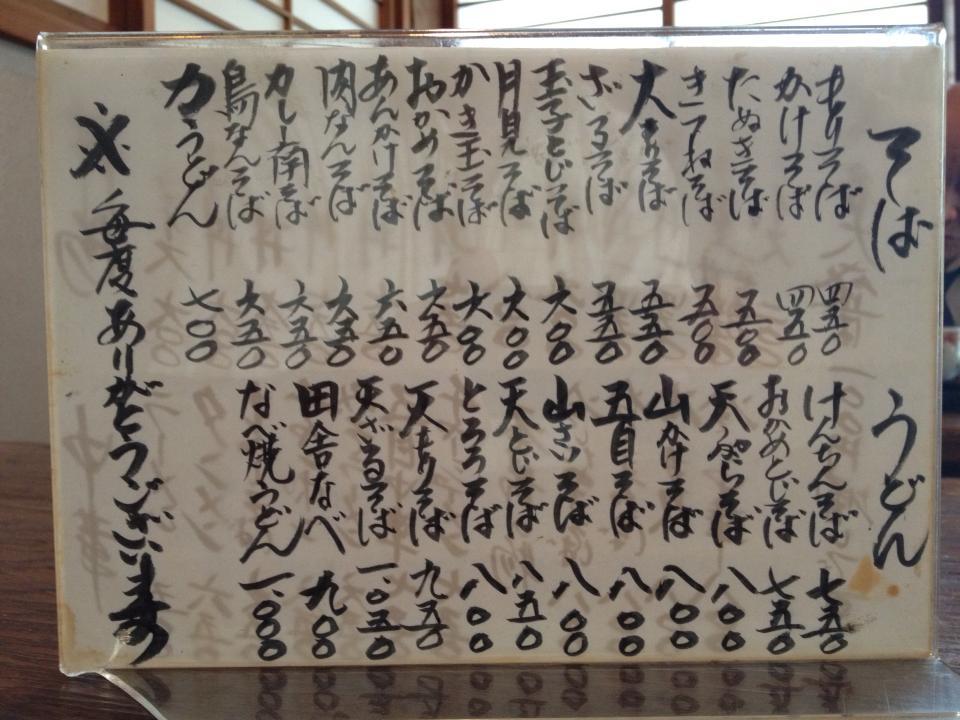 そば うどん
もりそば 四五〇
かけそば 四五〇
たぬきそば 五〇〇
きつねそば 五〇〇
大もりそば 五五〇
ざるそば 五五〇
玉子とじそば 六〇〇
月見そば 六〇〇
かき玉そば 六〇〇
おかめそば 六五〇
あんかけそば 六五〇
肉なんそば 六五〇
カレー南そば 六五〇
鳥なんそば 六五〇
力うどん 七〇〇
けんちんそば 七五〇
おかめとじそば 七五〇
天ぷらそば 八〇〇
山かけそば 八〇〇
五目そば 八〇〇
山さいそば 八〇〇
天とじそば 八五〇
とろろそば 八〇〇
天もりそば 九五〇
天ざるそば 一、〇五〇
田舎なべ 九〇〇
なべ焼うどん 一、〇〇〇
※毎度ありがとうございます